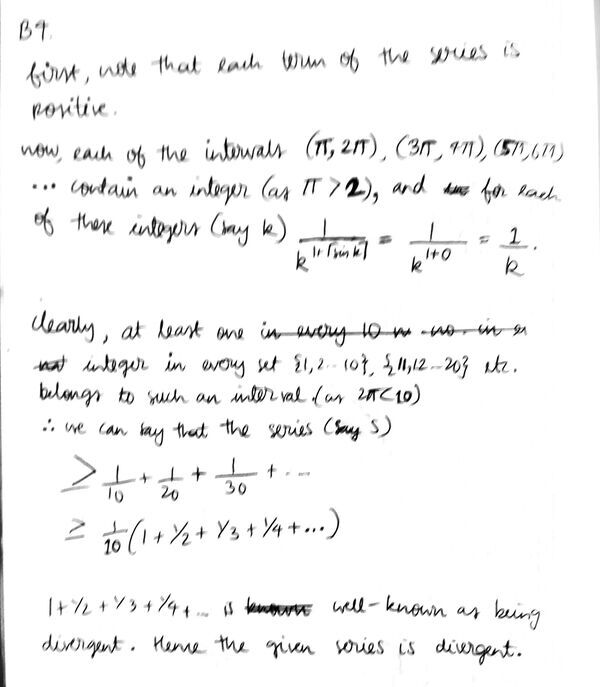 B4.
first, note that each term of the series is
positive.
now, each of the intervals (π, 2π), (3π, 4π), (5π, 6π)
... contain an integer (as π > 2), and for each
of these integers (say k) 1/k^{1+⌈sin k⌉} = 1/k^{1+0} = 1/k.
clearly, at least one in every 10 no. in a
integer in every set {1,2..10}, {11,12..20} etc.
belongs to such an interval (as 2π<10)
∴ we can say that the series (say S)
≥ 1/10 + 1/20 + 1/30 + ...
≥ 1/10 (1 + 1/2 + 1/3 + 1/4 + ...)
1 + 1/2 + 1/3 + 1/4 + ... is known well-known as being
divergent. Hence the given series is divergent.